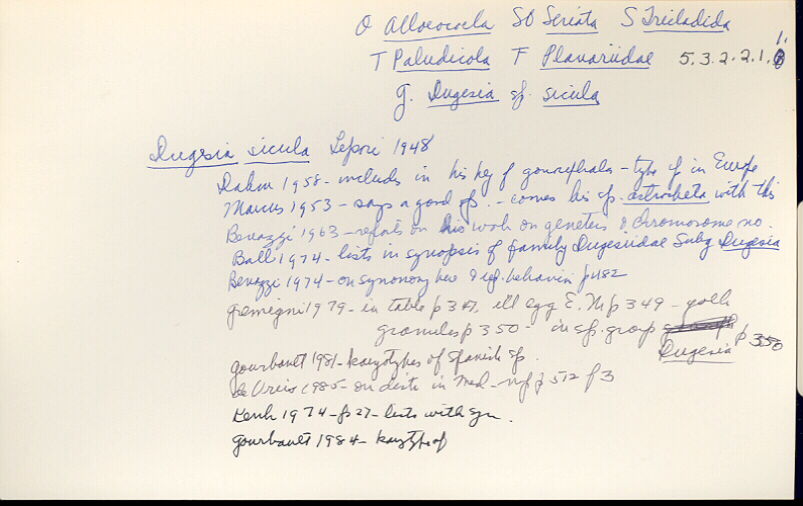 O Alloeocoela SO Seriata S Tricladida
T Paludicola F Planariidae 5.3.2.2.1.
1.
g. Dugesia sp. sicula
Dugesia sicula Lepori 1948
Dahm 1958 - includes in his key of gonocephala - type sp in Europe
Marcus 1953 - says a good sp. - comes his sp. astrocheta with this
Benazzi 1963 - reports on his work on genetics & chromosome no.
Ball 1974 - lists in synopsis of family Dugesiidae Subg Dugesia
Benazzi 1974 - on synonomy here & rep. behavior p 482
gremigni 1979 - in table p 347, ill egg E. M p 349 - yolk
granules p 350 - in sp. group
Dugesia p 350
gourbault 1981 - karyotypes of Spanish sp.
de Vries 1985 - on distr in Med - map p 512 f 3
Kenk 1974 - p 27 - lists with syn.
gourbault 1984 - karyotype of